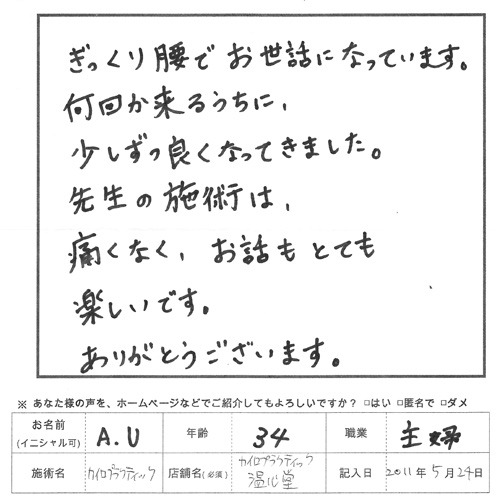 ぎっくり腰でお世話になっています。
何回か来るうちに、
少しずつ良くなってきました。
先生の施術は、
痛くなく、お話もとても
楽しいです。
ありがとうございます。
※ あなた様の声を、ホームページなどでご紹介してもよろしいですか？ □はい □匿名で □ダメ
お名前 (イニシャル可) A.U 年齢 34 職業 主婦
施術名 カイロプラクティック 店舗名(必須) カイロプラクティック 温心堂 記入日 2011年5月24日